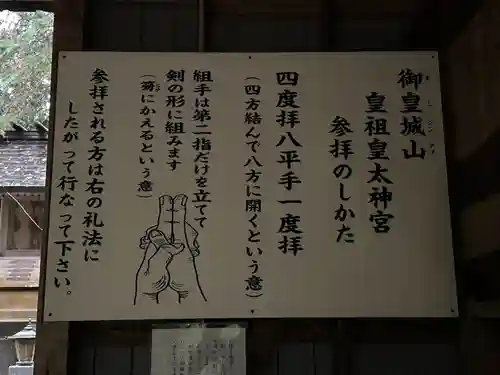 御皇城山
皇祖皇太神宮
参拝のしかた
四度拝八平手一度拝
（四方結んで八方に開くという意）
組手は第二指だけを立てて
剣の形に組みます
にかえるという意）
参拝される方は右の礼法に
したがって行なって下さい。